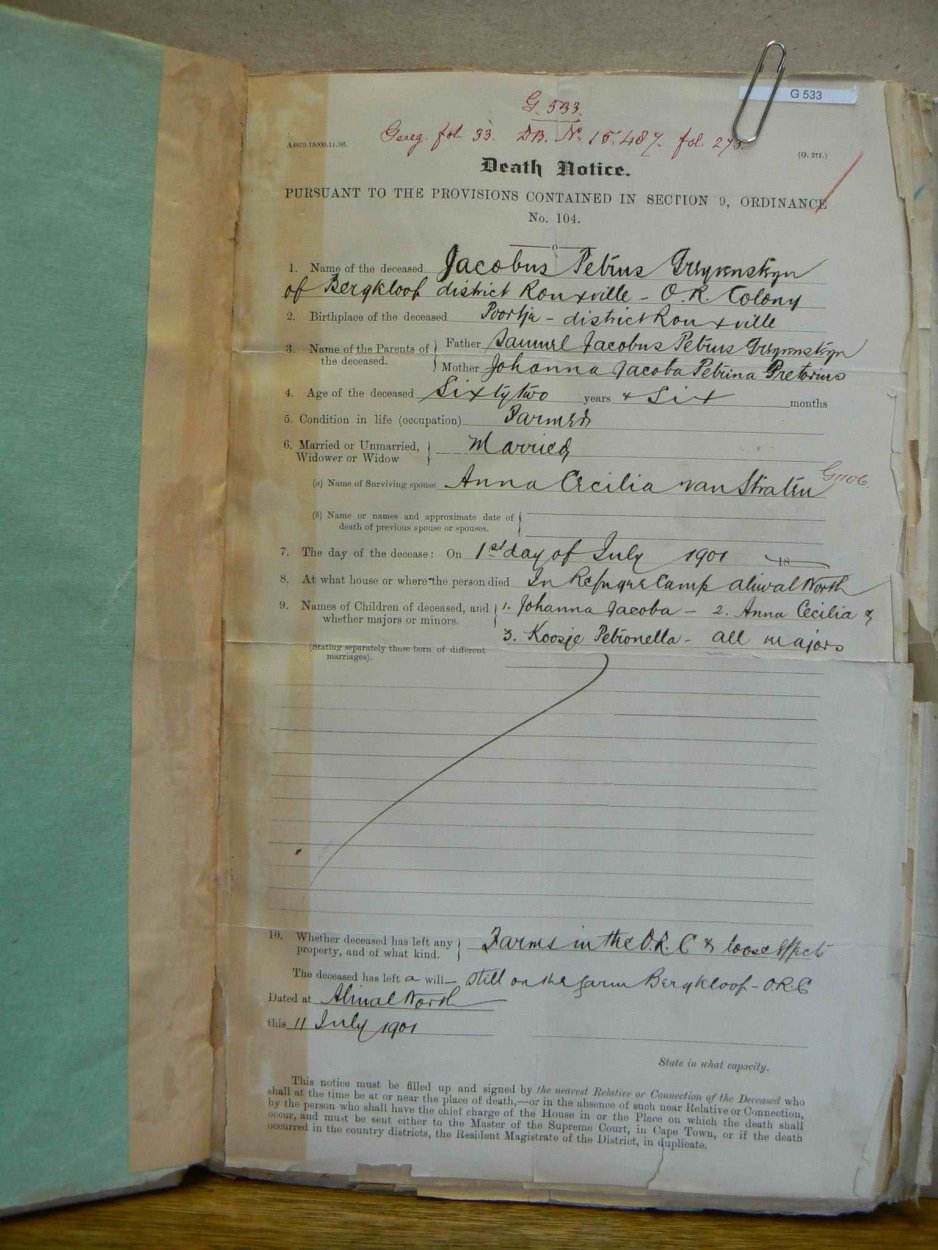 G 533
G. 533.
Gereg. fol. 33. DB. No. 15.487. fol. 275.
A4879.15000.11.96.
(G. 271.)
Death Notice.
PURSUANT TO THE PROVISIONS CONTAINED IN SECTION 9, ORDINANCE
No. 104.
1. Name of the deceased Jacobus Petrus
of Bergkloof district Rouxville - O.R. Colony
2. Birthplace of the deceased - district Rouxville
3. Name of the Parents of the deceased. Father Samuel Jacobus Petrus
Mother Johanna Jacoba Petrina Pretorius
4. Age of the deceased Sixty two years & Six months
5. Condition in life (occupation) Farmer
6. Married or Unmarried, Widower or Widow Married
(a) Name of Surviving spouse Anna Cecilia van Straten
(b) Name or names and approximate date of
death of previous spouse or spouses.
7. The day of the decease: On 1st day of July 1901 18
8. At what house or where the person died In Refugee Camp Aliwal North
9. Names of Children of deceased, and 1. Johanna Jacoba - 2. Anna Cecilia &
whether majors or minors. 3. Koosje Petronella - all majors
(Stating separately those born of different
marriages).
10. Whether deceased has left any
property, and of what kind. Farms in the O.R.C & loose effects
The deceased has left a will - still on the farm Bergkloof - O.R.C
Dated at Aliwal North
this 11 July 1901
State in what capacity.
This notice must be filled up and signed by the nearest Relative or Connection of the Deceased who
shall at the time be at or near the place of death,—or in the absence of such near Relative or Connection,
by the person who shall have the chief charge of the House in or the Place on which the death shall
occur, and must be sent either to the Master of the Supreme Court, in Cape Town, or if the death
occurred in the country districts, the Resident Magistrate of the District, in duplicate.